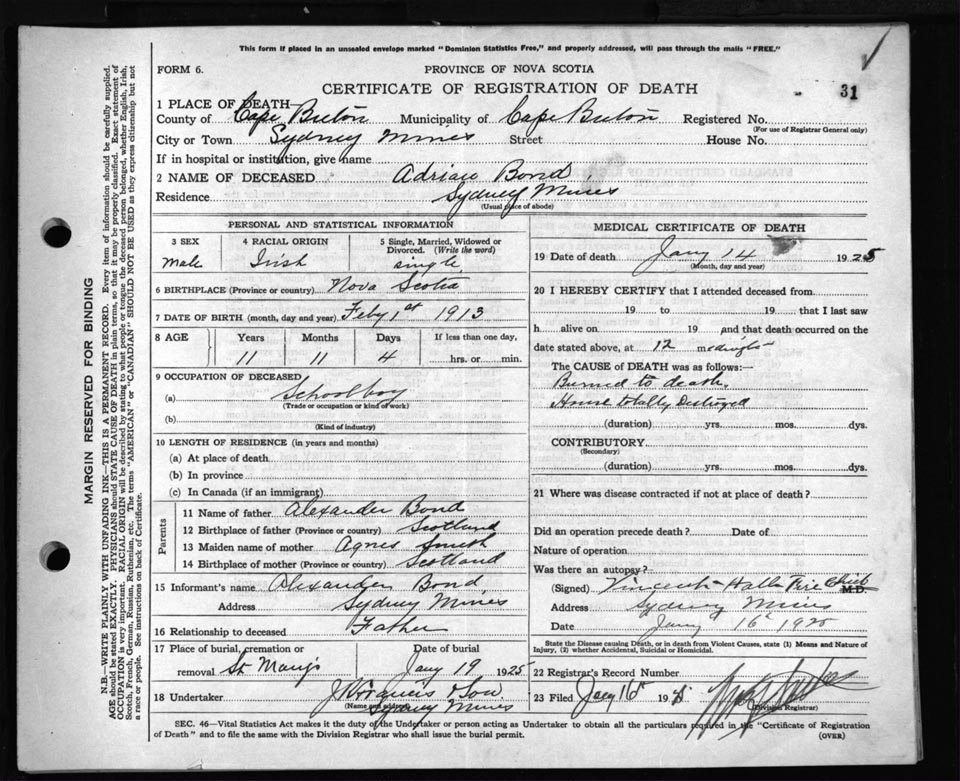 This form if placed in an unsealed envelope marked "Dominion Statistics Free," and properly addressed, will pass through the mails "FREE."
FORM 6.
PROVINCE OF NOVA SCOTIA
CERTIFICATE OF REGISTRATION OF DEATH
31
1 PLACE OF DEATH
County of Cape Breton Municipality of Cape Breton Registered No.
(For use of Registrar General only)
City or Town Sydney Mines Street House No.
If in hospital or institution, give name
2 NAME OF DECEASED Adrian Bond
Residence Sydney Mines
(Usual place of abode)
PERSONAL AND STATISTICAL INFORMATION
3 SEX 4 RACIAL ORIGIN 5 Single, Married, Widowed or Divorced. (Write the word)
Male Irish single
6 BIRTHPLACE (Province or country) Nova Scotia
7 DATE OF BIRTH (month, day and year) Feby 1st 1913
8 AGE Years Months Days If less than one day,
11 11 4 hrs. or min.
9 OCCUPATION OF DECEASED
(a) Schoolboy
(Trade or occupation or kind of work)
(b)
(Kind of industry)
10 LENGTH OF RESIDENCE (in years and months)
(a) At place of death
(b) In province
(c) In Canada (if an immigrant)
Parents
11 Name of father Alexander Bond
12 Birthplace of father (Province or country) Scotland
13 Maiden name of mother Agnes Smith
14 Birthplace of mother (Province or country) Scotland
15 Informant's name Alexander Bond
Address Sydney Mines
16 Relationship to deceased Father
17 Place of burial, cremation or Date of burial
removal St Mary's Jany 19 1925
18 Undertaker & Son
(Name and address)
Sydney Mines
MEDICAL CERTIFICATE OF DEATH
19 Date of death Jany 14 1925
(Month, day and year)
20 I HEREBY CERTIFY that I attended deceased from
19 to 19 that I last saw
h alive on 19 and that death occurred on
date stated above, at 12 m midnight
The CAUSE of DEATH was as follows:—
Burned to death.
House totally Destroyed
(duration) yrs. mos. dys.
CONTRIBUTORY
(Secondary)
(duration) yrs. mos. dys.
21 Where was disease contracted if not at place of death?
Did an operation precede death? Date of
Nature of operation
Was there an autopsy?
(Signed) Vincent Fire Chief M.D.
Address Sydney Mines
Date Jany 16th 1925
State the Disease causing Death, or in death from Violent Causes, state (1) Means and Nature of
Injury, (2) whether Accidental, Suicidal or Homicidal.
22 Registrar's Record Number
23 Filed Jany 16th 1925
(Division Registrar)
SEC. 46—Vital Statistics Act makes it the duty of the Undertaker or person acting as Undertaker to obtain all the particulars required in the "Certificate of Registration
of Death" and to file the same with the Division Registrar who shall issue the burial permit.
(OVER)
MARGIN RESERVED FOR BINDING
N.B.—WRITE PLAINLY WITH UNFADING INK—THIS IS A PERMANENT RECORD. Every item of information should be carefully supplied.
AGE should be stated EXACTLY. PHYSICIANS should STATE CAUSE OF DEATH in plain terms, so that it may be properly classified. Exact statement of
OCCUPATION is very important. RACIAL ORIGIN will be described by stating to what people or tongue the deceased person belonged, whether English, Irish,
Scotch, French, German, Russian, Ruthenian, etc. The terms "AMERICAN" or "CANADIAN" SHOULD NOT BE USED as they express citizenship but not
a race or people. See instructions on back of Certificate.